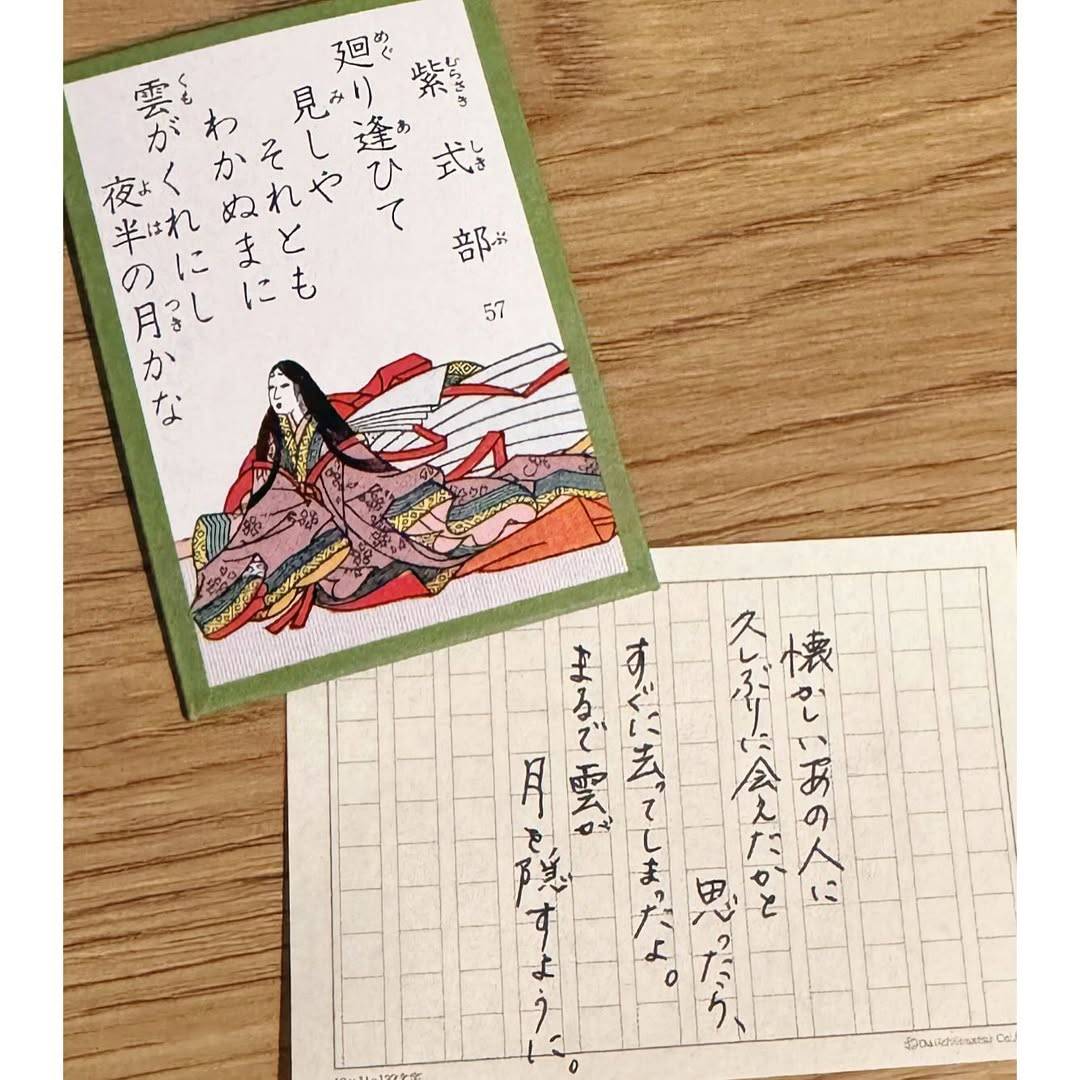 紫式部
57
廻り逢ひて
見しや
それとも
わかぬまに
雲がくれにし
夜半の月かな
懐かしいあの人に
久しぶりに会えたかと
思ったら、
すぐに去ってしまったよ。
まるで雲が
月を隠すように。